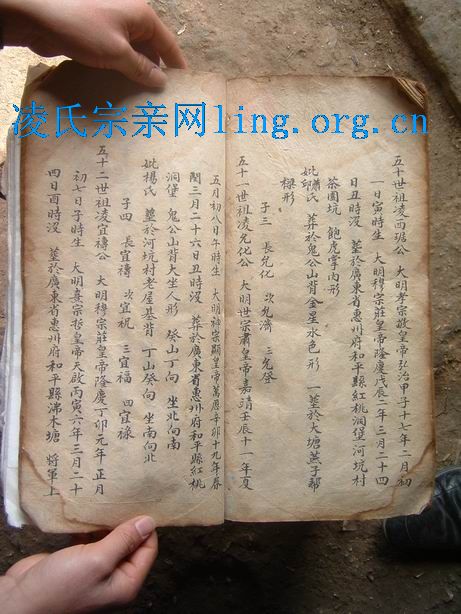 凌氏宗亲网ling.org.cn
五十世祖凌西琚公 大明孝宗敬皇帝弘治甲子十七年二月初
一日寅時生 大明穆宗莊皇帝隆慶戊辰二年三月二十四
日丑時没 葬於廣東省惠州府和平縣紅桃洞堡河坑村
茶園坑 飽虎掌肉形
妣蕭氏 葬於鬼公山背金星水色形 一葬於大塘燕子幫
邱
樑形
子三 長允化 次允濟 三允登
五十一世祖凌允化公 大明世宗肅皇帝嘉請壬辰十一年夏
五月初八日午時生 大明神宗顯皇帝萬曆辛卯十九年春
閏三月二十六日丑時没 葬於廣東省惠州府和平縣紅桃
洞堡 鬼公山背大坐人形 癸山丁向 坐北向南
妣楊氏 葬於河坑村老屋基背 丁山癸向 坐南向北
子四 長宜禱 次宜祝 三宜福 四宜祿
五十二世祖凌宜禱公 大明穆宗莊皇帝隆慶丁卯元年正月
初七日子時生 大明熹宗哲皇帝天啟丙寅六年三月二十
四日酉時没 葬於廣東省惠州府和平縣沸水塘 將軍上